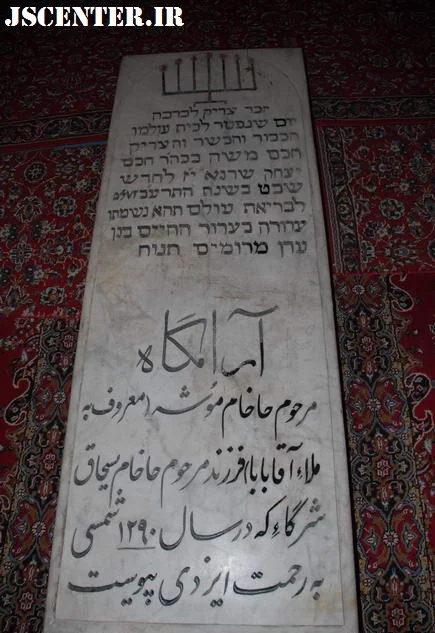 JSCENTER.IR
זכר צדיק לברכה
יום שנפטר לבית עולמו
הכבוד והכשר והצדיק
חכם משה בכהר חכם
יצחק שרגא י״ז לחדש
שבט בשנת התרעב
לבריאה עולם תהא נשמתו
צרורה בצרור החיים בגן
עדן מרומים תנוח
آرامگاه
مرحوم حاخام موشه (معروف به
ملاء آقا بابا) فرزند مرحوم حاخام یسحاق
شرگاء که در سال ۱۲۹۰ شمسی
به رحمت ایزدی پیوست